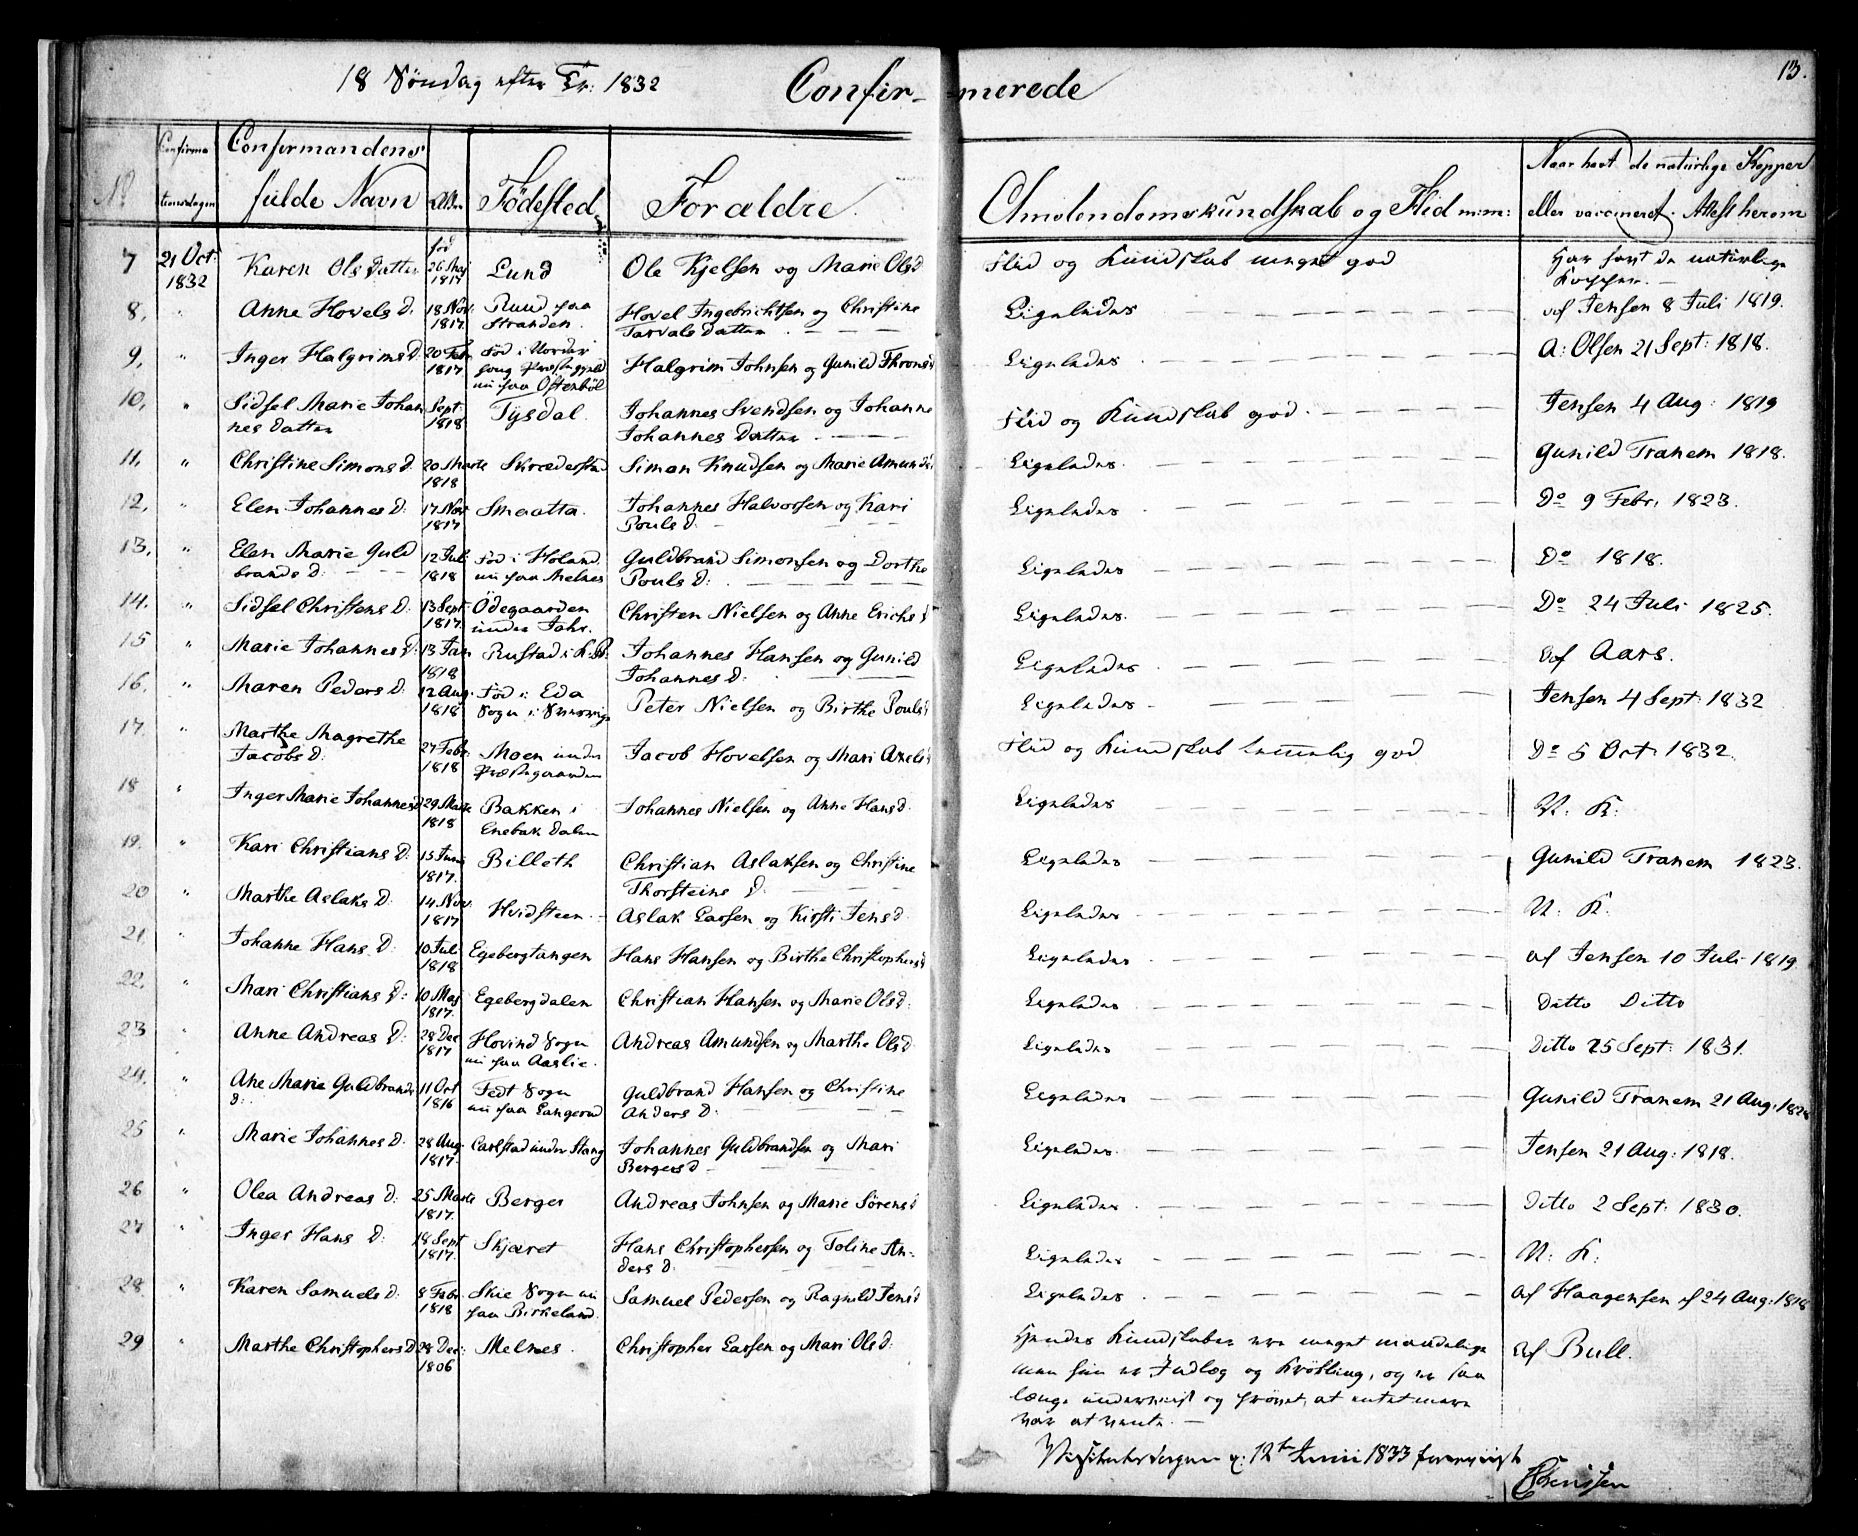 18 Søndag efter Tr: 1832
Confir- -merede
13.
No
Confirma
tionsdagen
Confirmandens
fulde Navn
Alder
Fødested
Forældre.
Christendomskundskab og Flid m:m:
Naar havt de naturlige Kopper
eller vaccineret. Attest herom
7 21 Oct: 1832 Karen Ols Datter fød 26 Maj 1817 Lund Ole Kjelsen og Marie Olsd Flid og Kundskab meget god Har havt de naturlige Kopper. —
8, " Anne Hovels d, 18 Nov: 1817. Ruud paa Stranden. Hovel Ingebrichtsen og Christine Tarvals datter. Ligeledes af Jensen 8 Juli 1819.
9, " Inger Halgrims d. 20 Febr 1817 Fød i Nordre Houg Præstegjeld nu paa Ostenbøl Halgrim Johnsen og Gunild Throns d Ligeledes A: Olsen 21 Sept: 1818.
10, " Sidsel Marie Johan nes datter Sept: 1818 Tysdal. Johannes Svendsen og Johanne Johannes datter. Flid og Kundskab god. Jensen 4 Aug: 1819
11, " Christine Simons d. 20 Marts 1818 Skrædersted Simon Knudsen og Marie Amunds Ligeledes. Gunild Tranem 1818.
12, " Elen Johannes d: 17 Nov 1817 Smaatta. Johannes Halvorsen og Kari Pouls d: Ligeledes Do 9 Febr, 1823.
13, " Elen Marie Guld brands d: 12 Juli 1818 Fød i Høland nu paa Melnes Guldbrand Simonsen og Dorthe Pouls d: Ligeledes Do 1818.
14. " Sidsel Christens d: 13 Sept: 1817. Ödegaarden under Fahr. Christen Nielsen og Anne Erichs d Ligeledes. Do 24 Juli 1825.
15 " Marie Johannes d: 13 Jan 1818 Rustad i K:R: Johannes Hansen og Gunild Johannes d: Ligeledes af Aars.
16. " Maren Peders d: 12 Aug. 1818 Fød i Eda Sogn i Sverrig Peter Nielsen og Birthe Pouls d Ligeledes Jensen 4 Sept: 1832
17. " Marthe Magrethe Jacobs d: 27 Febr. 1818 Moen under Præstegaarden Jacob Hovelsen og Mari Axels d Flid og Kundskab temmelig god Do 5 Oct: 1832.
18 " Inger Marie Johannes d 29 Marts 1818 Bakken i Enebak dalen Johannes Nielsen og Anne Hans d. Ligeledes N: K:
19. " Kari Christians d: 15 Juni 1817. Billeth Christian Aslaksen og Christine Thorsteins d. Ligeledes Gunild Tranem 1823.
20 " Marthe Aslaks d 14 Nov. 1817 Hvidsteen. Aslak Larsen og Kirsti Jens d. Ligeledes N: K:
21. " Johanne Hans d. 10 Juli 1818 Egebergtangen Hans Hansen og Birthe Christophers d Ligeledes. af Jensen 10 Juli 1819
22, " Mari Christians d: 10 Maj 1817. Egebergdalen Christian Hansen og Marie Ols d: Ligeledes Ditto Ditto
23 " Anne Andreas d: 28 Dec 1817 Hovind Sogn nu paa Aaslie. Andreas Amundsen og Marthe Ols d Ligeledes Ditto 25 Sept: 1831.
24. " Ane Marie Guldbrands d: 11 Oct 1816 Fedt Sogn nu paa Langerud Guldbrand Hansen og Christine Anders d: Ligeledes Gunild Tranem 21 Aug: 1828
25 " Marie Johannes d: 28 Aug. 1817. Carlstad under Stang Johannes Guldbrandsen og Mari Bergers d Ligeledes. Jensen 21 Aug: 1818.
26 " Olea Andreas d: 25 Marts 1817. Berger Andreas Johnsen og Marie Sørens d Ligeledes Ditto 2 Sept: 1830.
27 " Inger Hans d: 18 Sept 1817. Skjæret Hans Christophersen og Toline An- ders d. Ligeledes N: K:
28 " Karen Samuels d: 8 Febr 1818 Skie Sogn nu paa Birkeland. Samuel Pedersen og Ragnild Jens d Ligeledes. af Haagensen af 24 Aug: 1818
29 " Marthe Christophers d 28 Dec: 1806 Melnes. Christopher Larsen og Mari Ols d: Hendes Kundskaber ere meget maadelige af Bull.
men hun er Indlæg og Krøbling, og er saa
længe underviist og prøvet, at intet mere
var at vente. —
12te Junii 1833